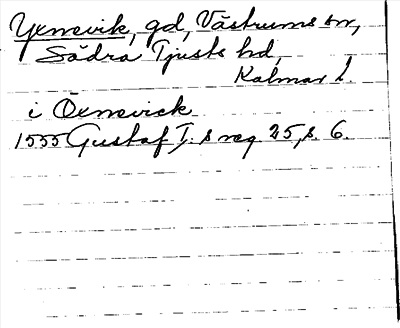 Yxnevik, gd, Västrums sn,
Södra Tjusts hd,
Kalmar l.
i Öxnevick
1555 Gustaf I:s reg 25, s. 6.